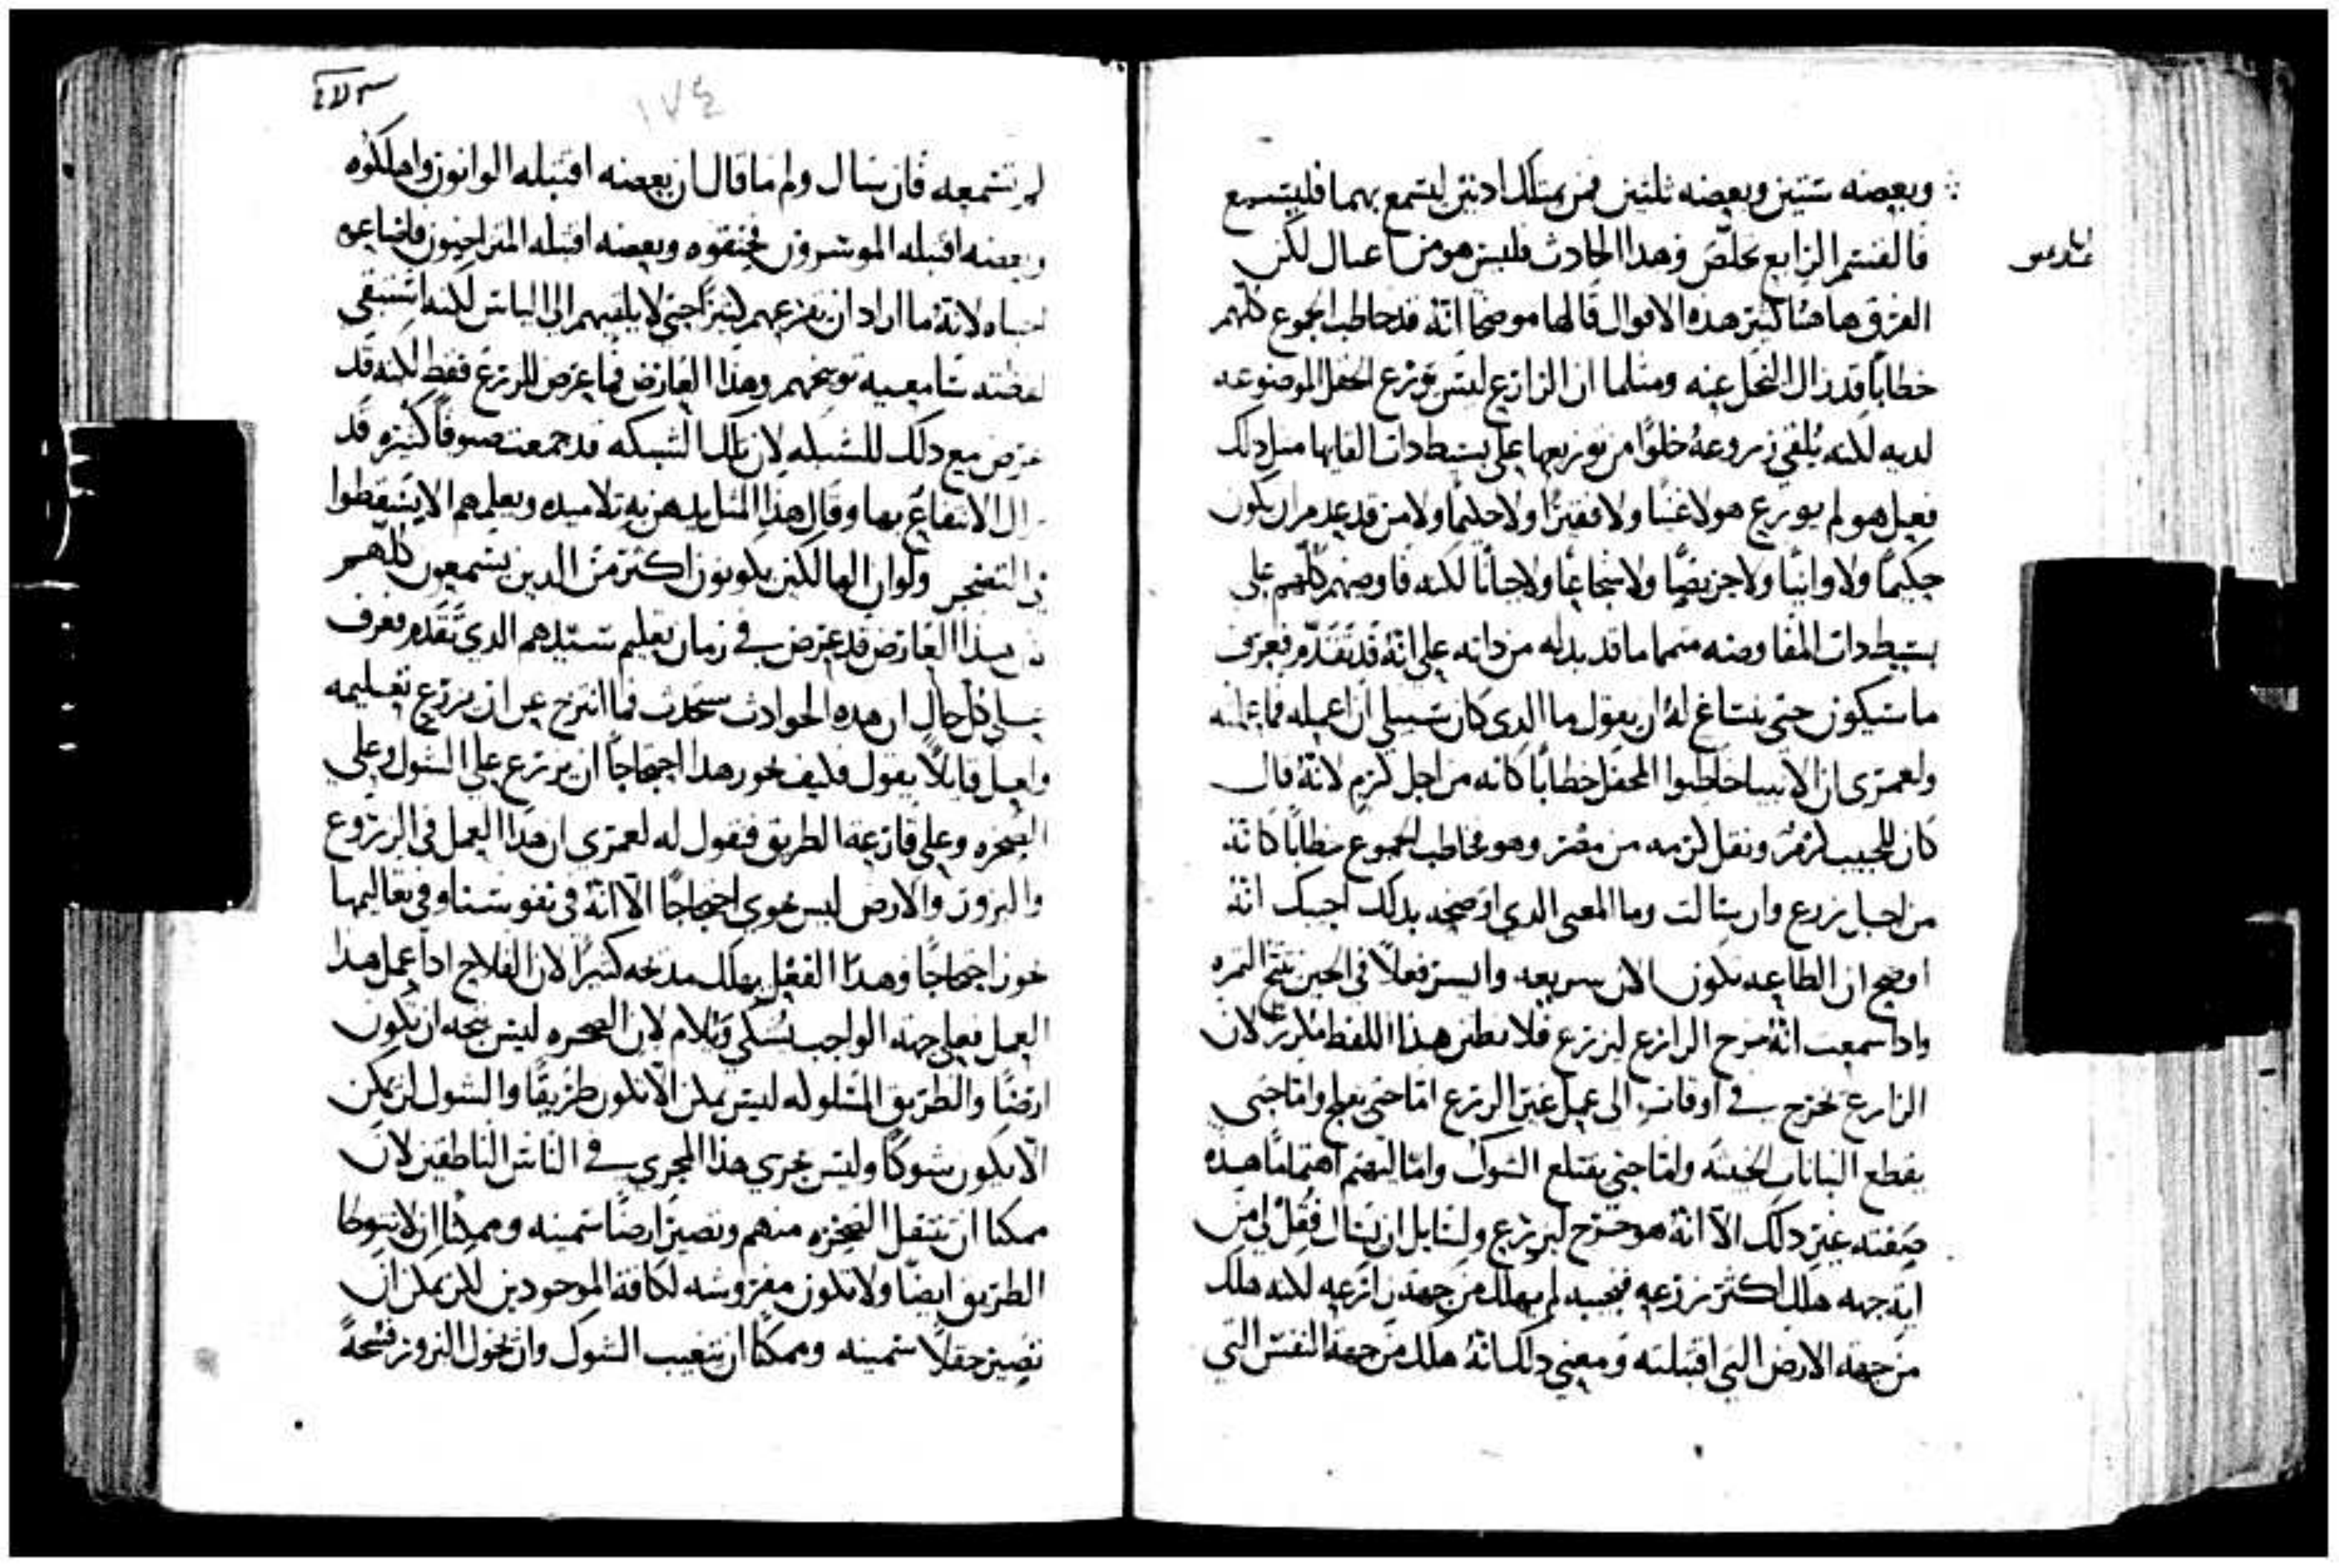 وبعضه ستين وبعضه ثلثين فمن يمتلك ادنين ليسمع بهما فليستمع
فالقسم الرابع تخلّص وهدا الحادث فليس هو من اعمال لكن
الفرق هاهنا كثير هده الاقوال قالها موضحا انّه قد خاطب الجموع كلهم
خطاباً قد زال البخل عنه ومثلما ان الزارع ليس يوزع الحقل الموضوعه
لديه لكنه يُلقي زروعهُ خلوًا من توزيعها على بسيط دات القايها مثل دلك
فعل هو لم يوزع هو لا غنيًا ولا فقيرًا ولا حكيمًا ولا من قد عدم ان يكون
حكيمًا ولا وانيًا ولا حريصًا ولا شجاعًا ولا جبانًا لكنه فاوضهم كلهم على
بسيط دات المفاوضه متمما ما قد بدله من داته على انّهُ قد تقدّم فعرف
ما سيكون حتى ينساغ لهُ ان يقول ما الدى كان سبيلي ان اعمله فما عملته
ولعمرى ان الانبيا خاطبوا المحفل خطابًا كانه من اجل كرمٍ لانّهُ قال
كان للحبيب كرمٌ ونقل كرمه من مصر وهو مخاطب الجموع خطابًا كانّهُ
من اجل زرع وان سالت وما المعنى الدي اوضحه بدلك اجبتك انّهُ
اوضح ان الطاعه تكون الان سريعه وايسر فعلاً في الحين تنتج الثمره
وادا سمعت انّهُ خرج الزارع ليزرع فلا تظنن هدا اللفظ مكررً لان
الزارع يخرج في اوقاتٍ الى عمل غير الزرع امّا حتى يفلح وامّا حتى
يقطع النباتات الخبيثه وامّا حتى يقتلع الشوك وامّا ليهتم اهتمامًا هده
صفته غير دلك الاّ انّهُ هو خرج ليزرع ولسايل ان يسال فقُل لي من
ايّه جهه هلك اكثر زرعه فنجيبه لم يهلك من جهة زارعه لكنه هلك
من جهة الارض التي اقتبلته ومعني دلك انّهُ هلك من جهة النفس التي
١٧٤
لم تسمعه فان سال ولم ما قال ان بعضه اقتبله الوانون واهلكوه
وبعضه اقتبله الموسرون فخنقوه وبعضه اقتبله المتراخون فاضاعوه
لانّهُ ما اراد ان يقرعهم كثيرًا حتى لا يلقيهم الى الياس لكنه استبقى
لفطنه سامعيه توبيخهم وهدا العارض فما عرض للزرع فقط لكنه قد
عرض مع دلك للشبكه لان تلك الشبكه قد جمعت صنوفًا كثيره قد
زال الانتفاع بها وقال هدا المثل يدهن به تلاميده ويعلمهم الا يسقطوا
في التضجر ولو ان الهالكين يكونون اكثر من الدين يسمعون كلّهم
هدا العارض قد عرض في زمان تعليم سيدهم الدي تقدّم فعرف
على كل حال ان هده الحوادث ستحدث فما انتزح عن ان يزرع تعليمه
ولعل قايلاً يقول فكيف يحوز هدا احتجاجًا ان يزرع على الشوك وعلى
الصخره وعلى قارعة الطريق فنقول له لعمرى ان هدا العمل في الزروع
والبزور والارض ليس يحوي احتجاجًا الاّ انّهُ في نفوسنا وفي تعاليمها
يحوز احتجاجًا وهدا الفعل يملك مديحه كثيرًا لان الفلاح ادا عمل هدا
العمل فعلى جهة الواجب يشكي ويلام لان الصخره ليس يتجه ان تكون
ارضًا والطريق المسلوكه ليس يمكن الاّ تكون طريقًا والشوك لن يمكن
الاّ يكون شوكًا وليس يجري هدا المجري في الناس الناطقين لان
ممكنا ان تنتقل الصخره منهم وتصير ارضًا سمينه وممكنًا ان لا تتوطا
الطريق ايضًا ولا تكون مفروشه لكافة الموجودين لكن يمكن ان
تصير حقلاً سمينه وممكنًا ان يغيب الشوك وان يخول البزور فسحةً